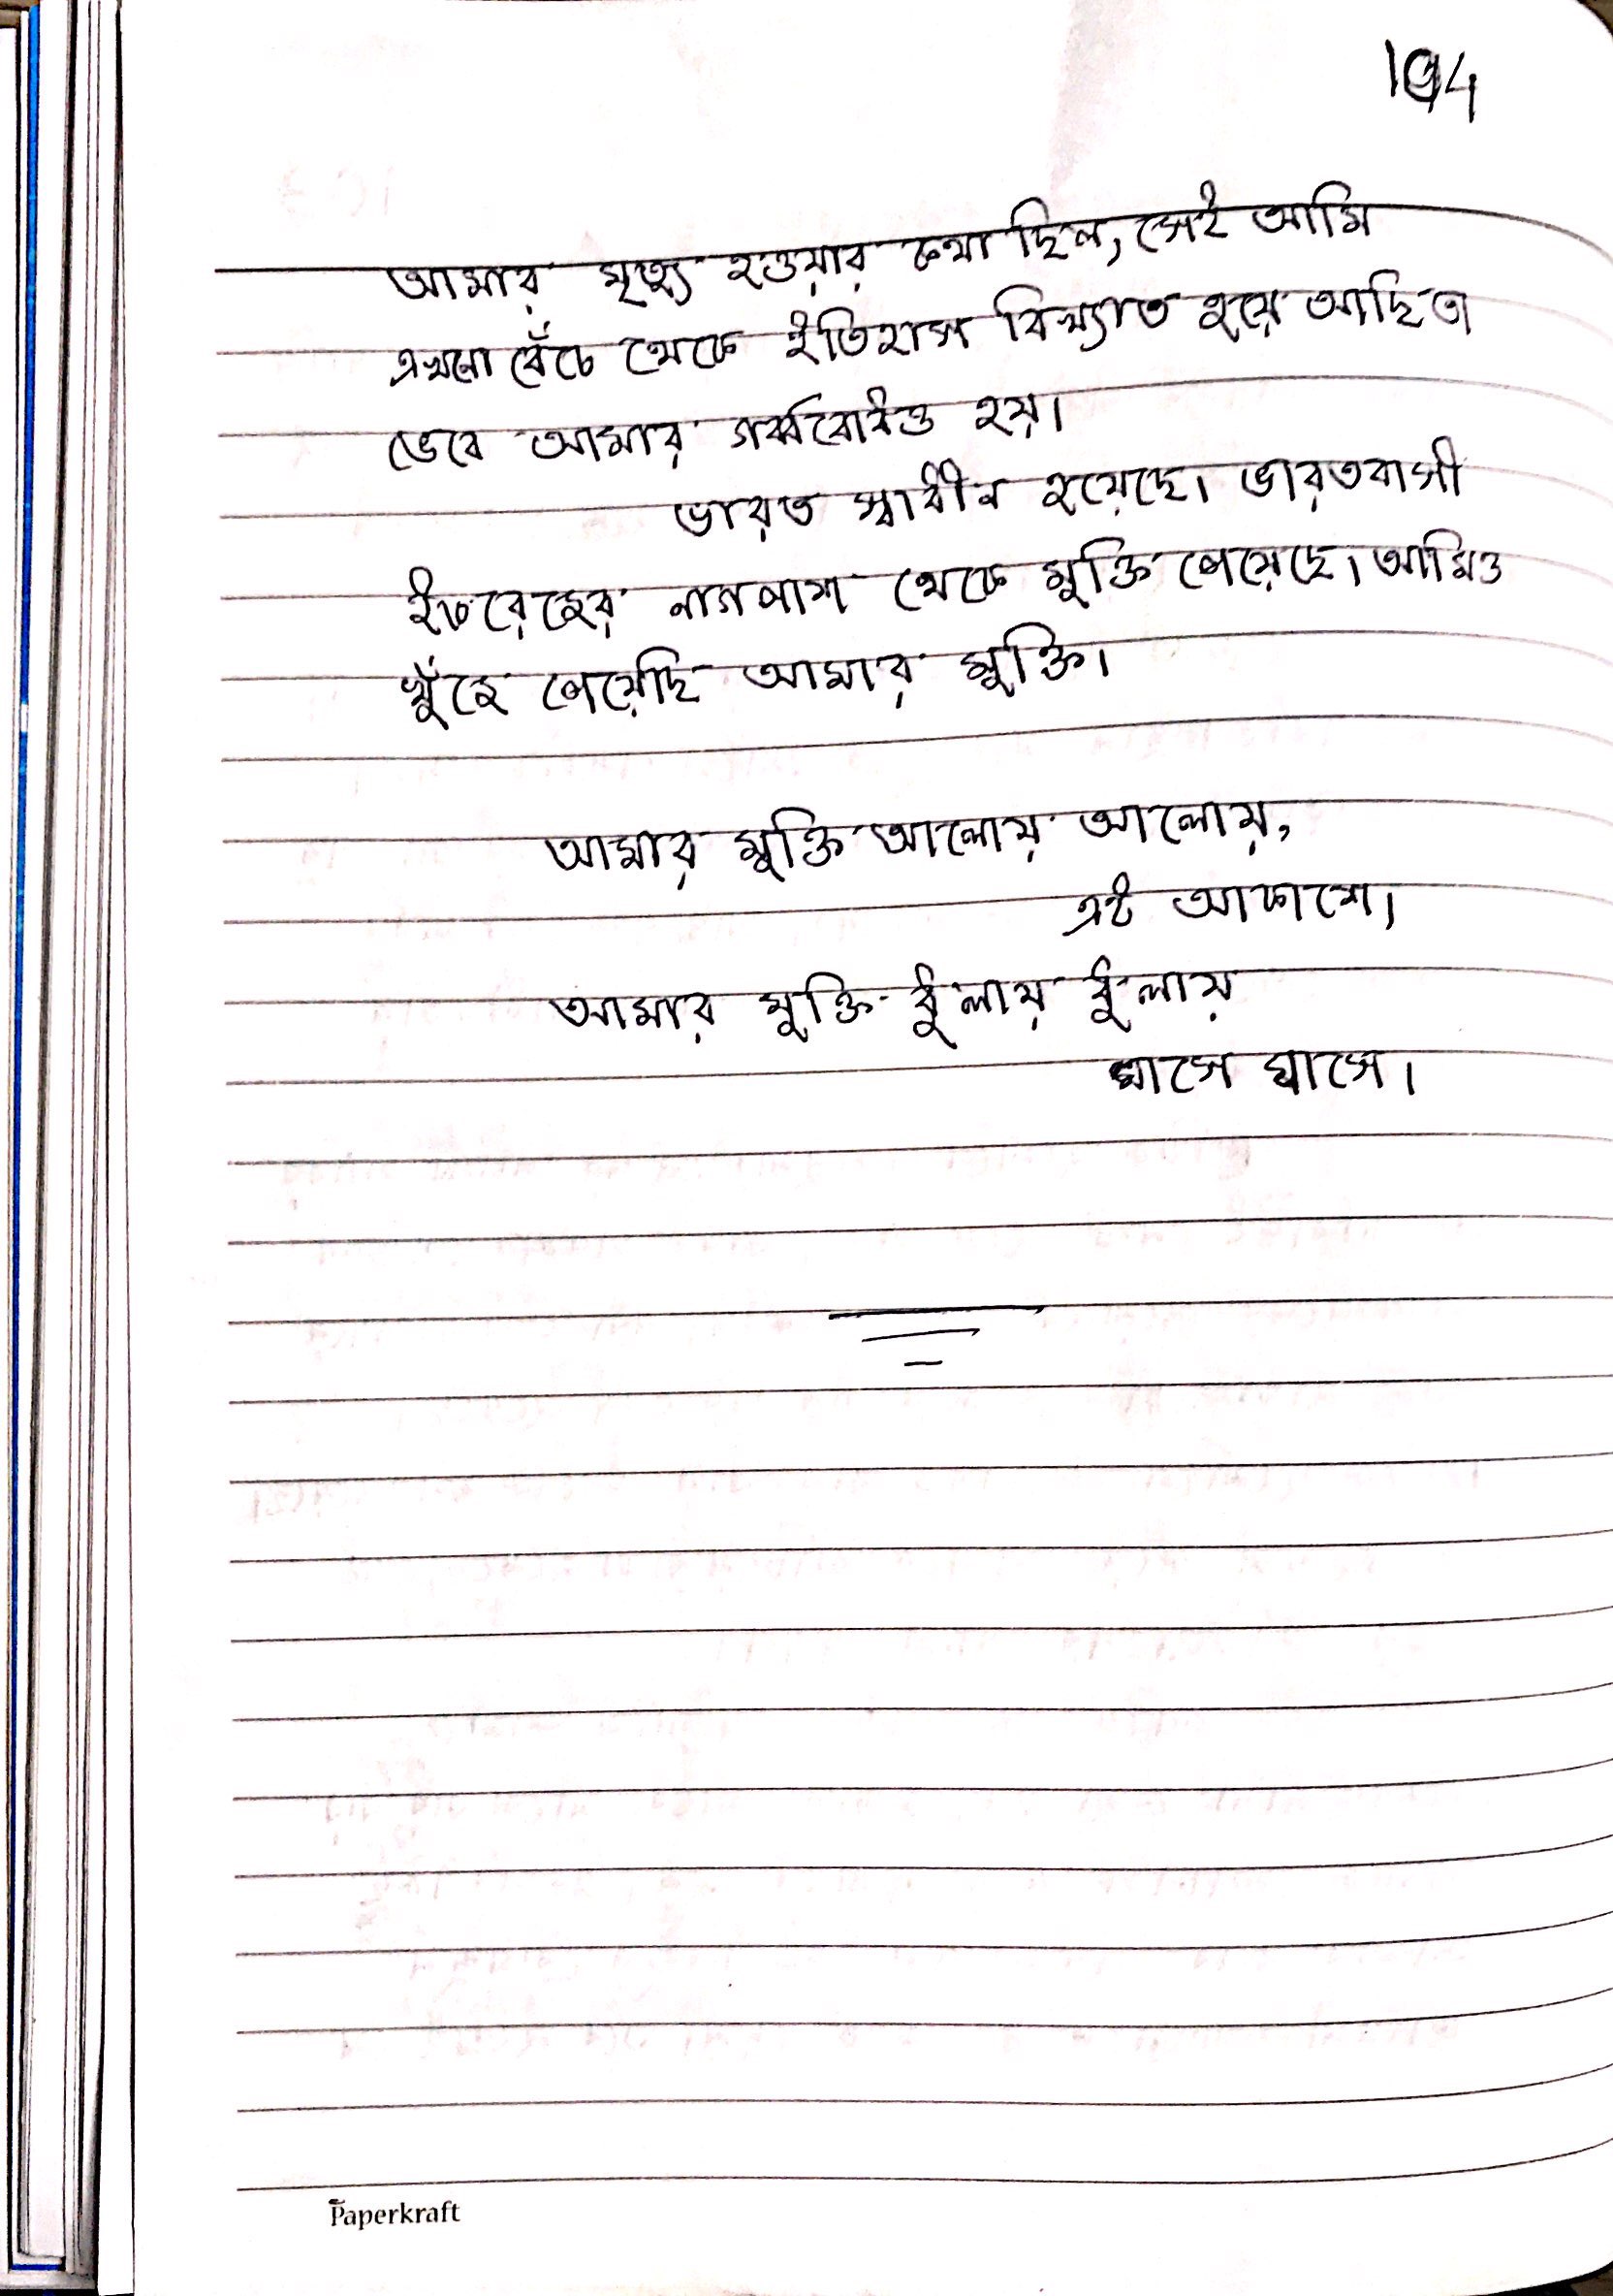 104
আমার মৃত্যু হওয়ার কথা ছিল, সেই আমি
এখনো বেঁচে থেকে ইতিহাস বিখ্যাত হয়ে আছি তা
ভেবে আমার গর্ববোধও হয়।
ভারত স্বাধীন হয়েছে। ভারতবাসী
ইংরেজের নাগপাশ থেকে মুক্তি পেয়েছে। আমিও
খুঁজে পেয়েছি আমার মুক্তি।
আমার মুক্তি আলোয় আলোয়,
এই আকাশে।
আমার মুক্তি ধুলায় ধুলায়
ঘাসে ঘাসে।
Paperkraft